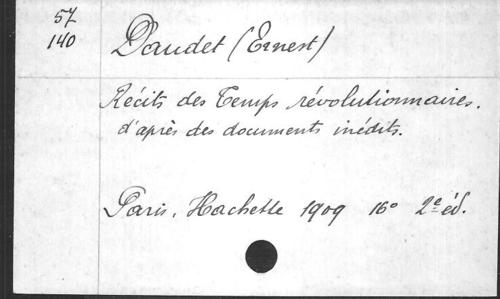 57
140
Daudet (Ernest)
Récits des Temps révolutionnaires.
d'après des documents inédits.
Paris, Hachette 1909 16° 2e éd.